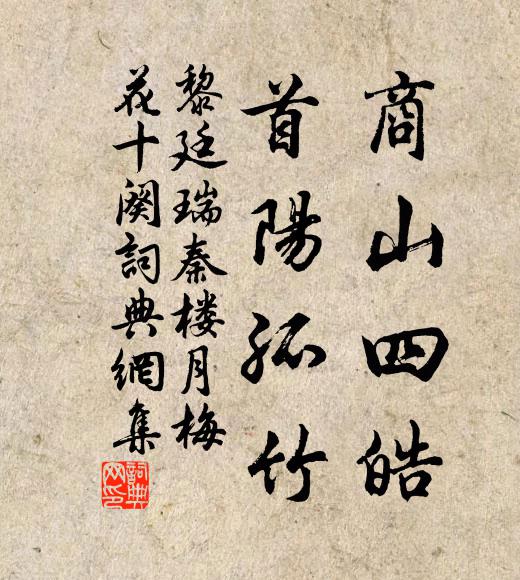 商山四皓
首陽孤竹
黎廷瑞秦楼月梅
花十阕詞典網集
詞典網印